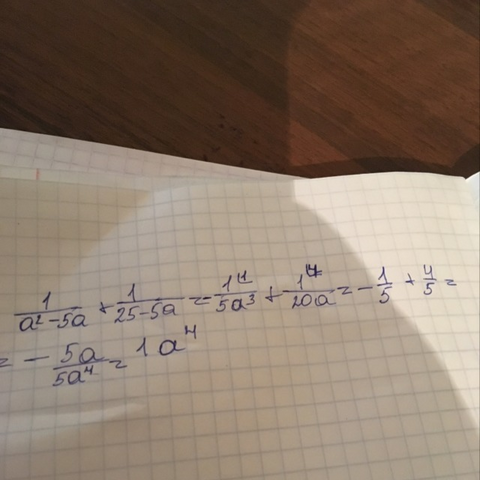 1/(a²-5a) + 1/(25-5a) = -1⁴/5a³ + 1⁴/20a = -1/5 + 4/5 =
= -5a/5a⁴ = 1a⁴